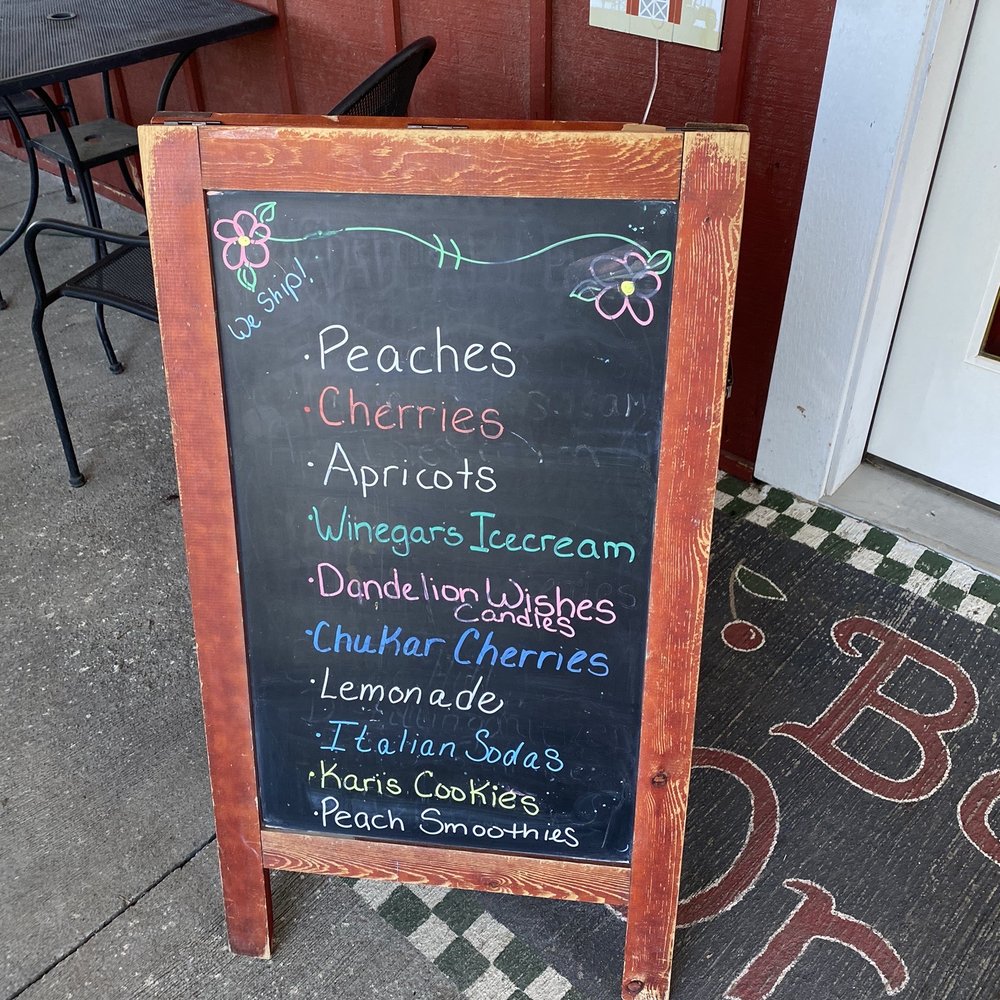 We Ship!
· Peaches
· Cherries
· Apricots
· Winegars Icecream
· Dandelion Wishes
Candies
· Chukar Cherries
· Lemonade
· Italian Sodas
· Karis Cookies
· Peach Smoothies
B
Or